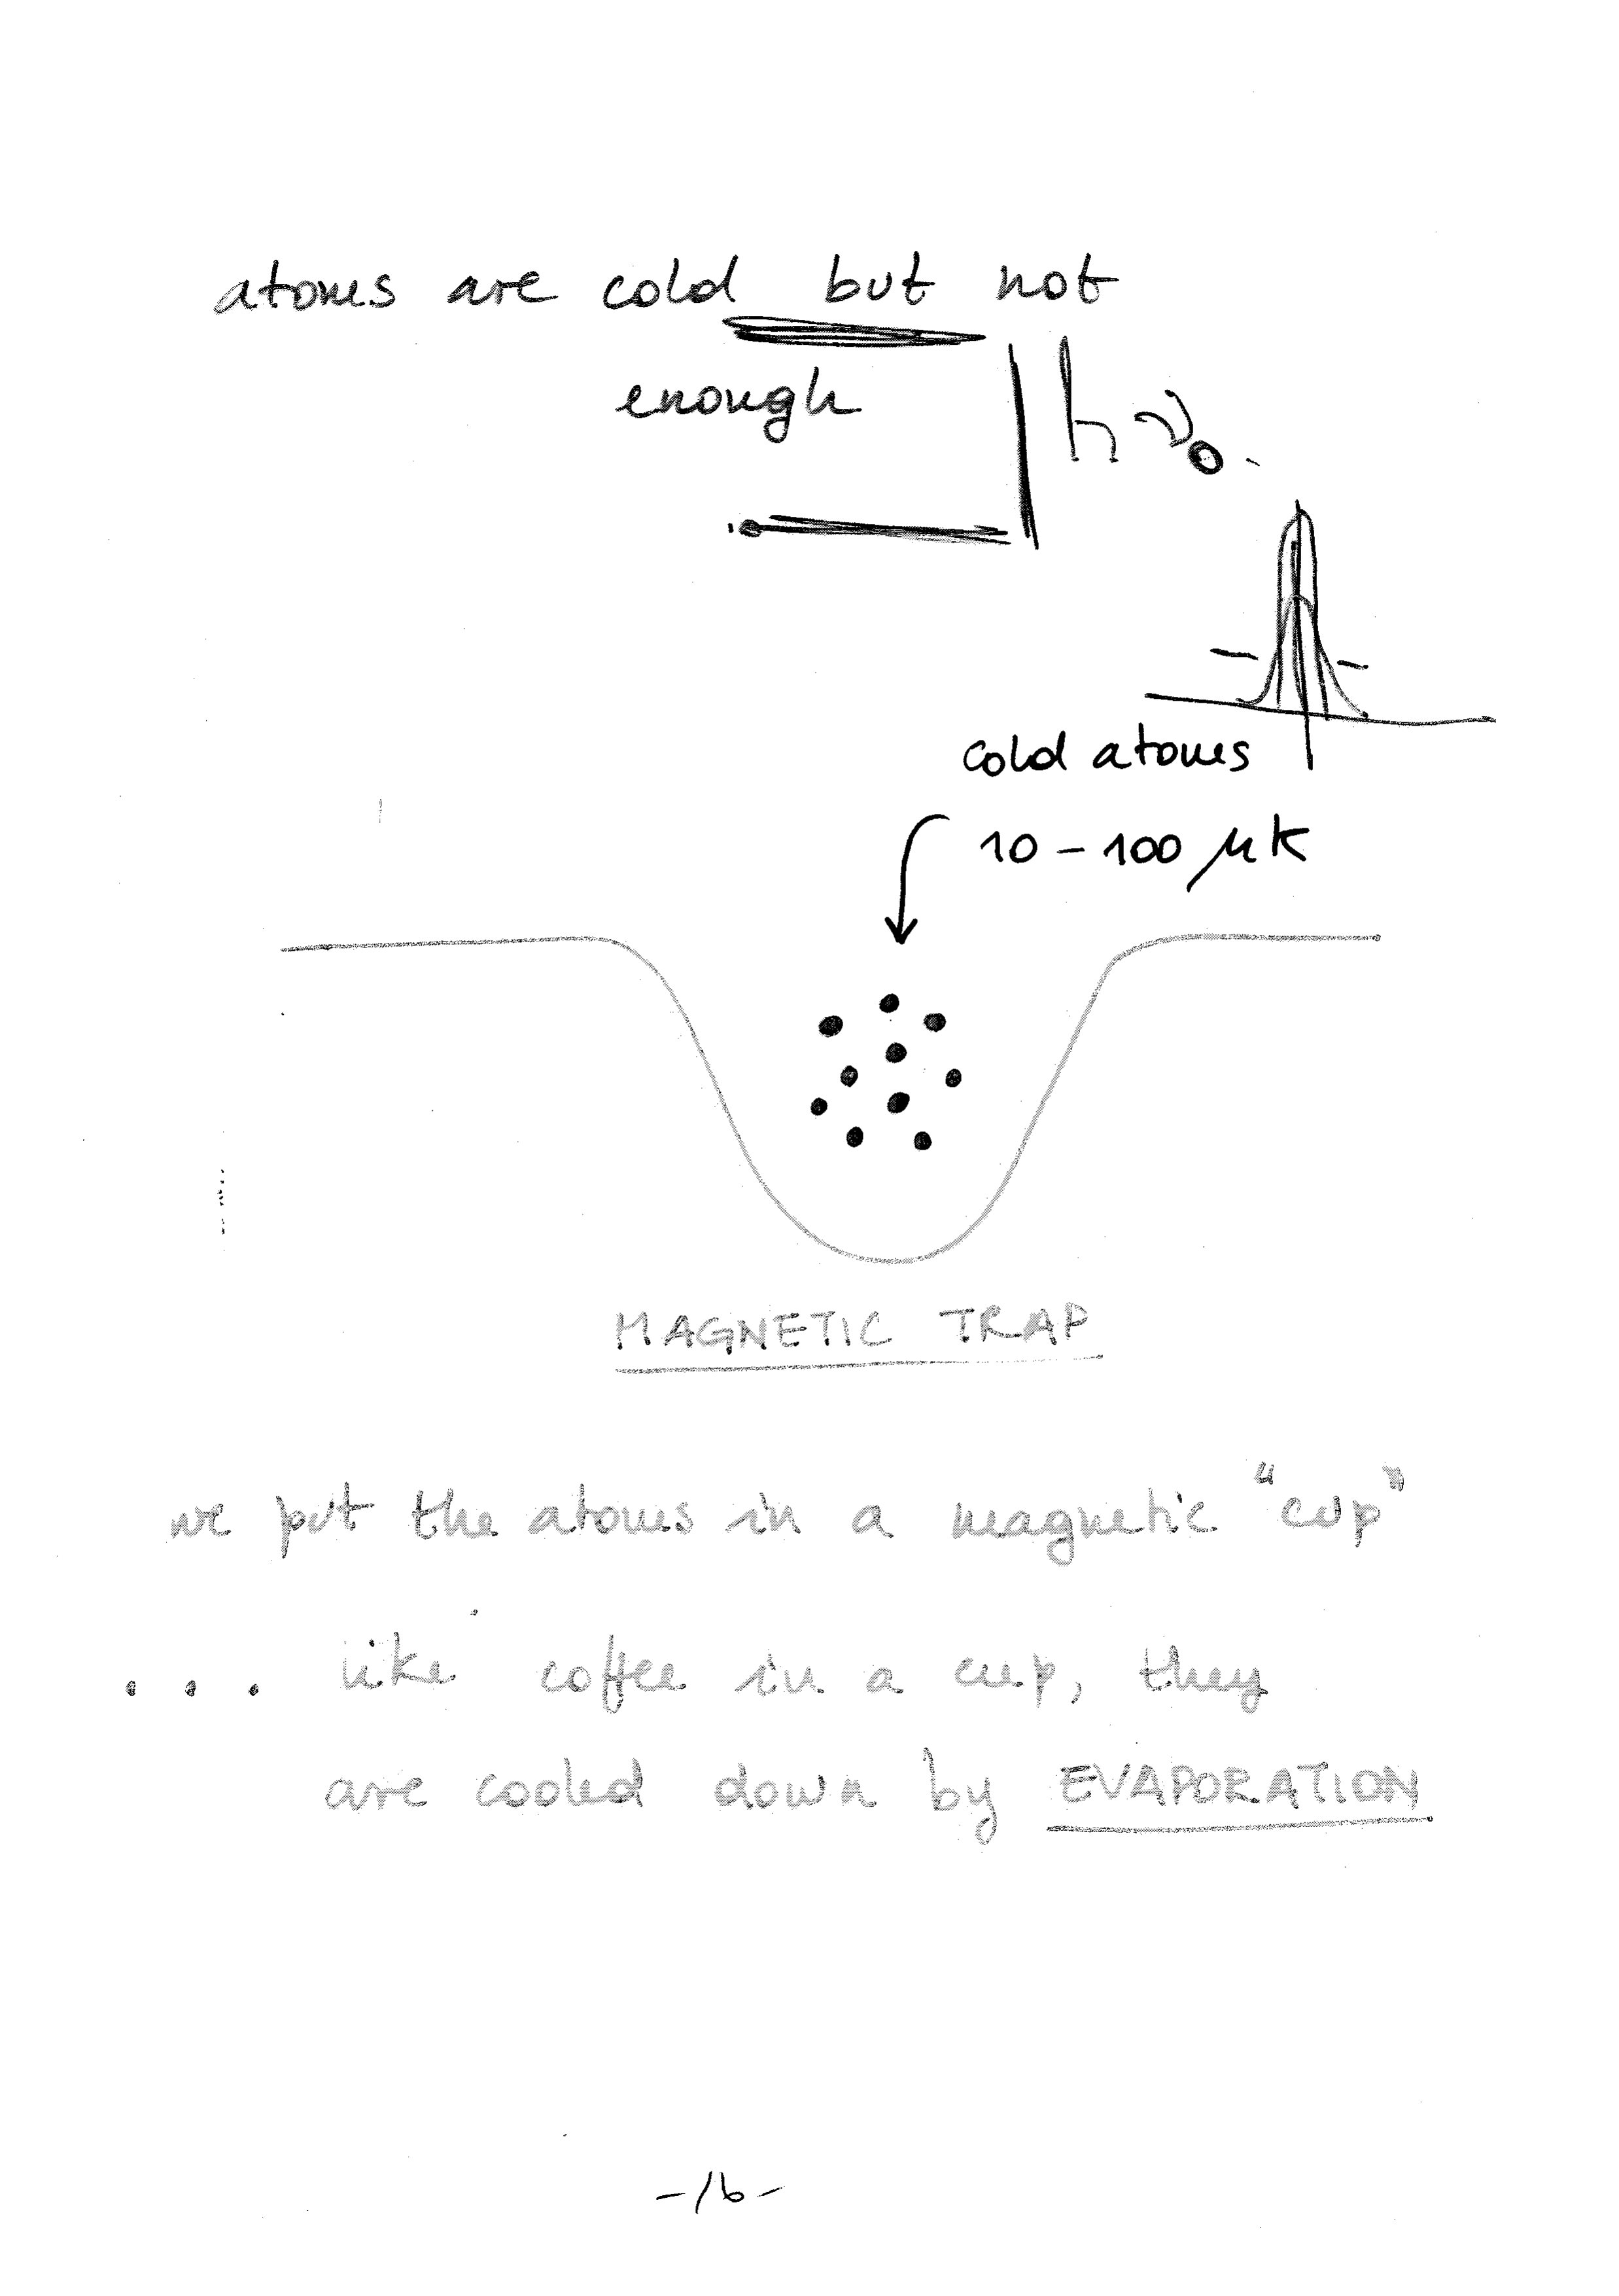 atoms are cold but not
enough
hν₀
cold atoms
10 - 100 μK
MAGNETIC TRAP
we put the atoms in a magnetic "cup"
... like coffee in a cup, they
are cooled down by EVAPORATION
-16-